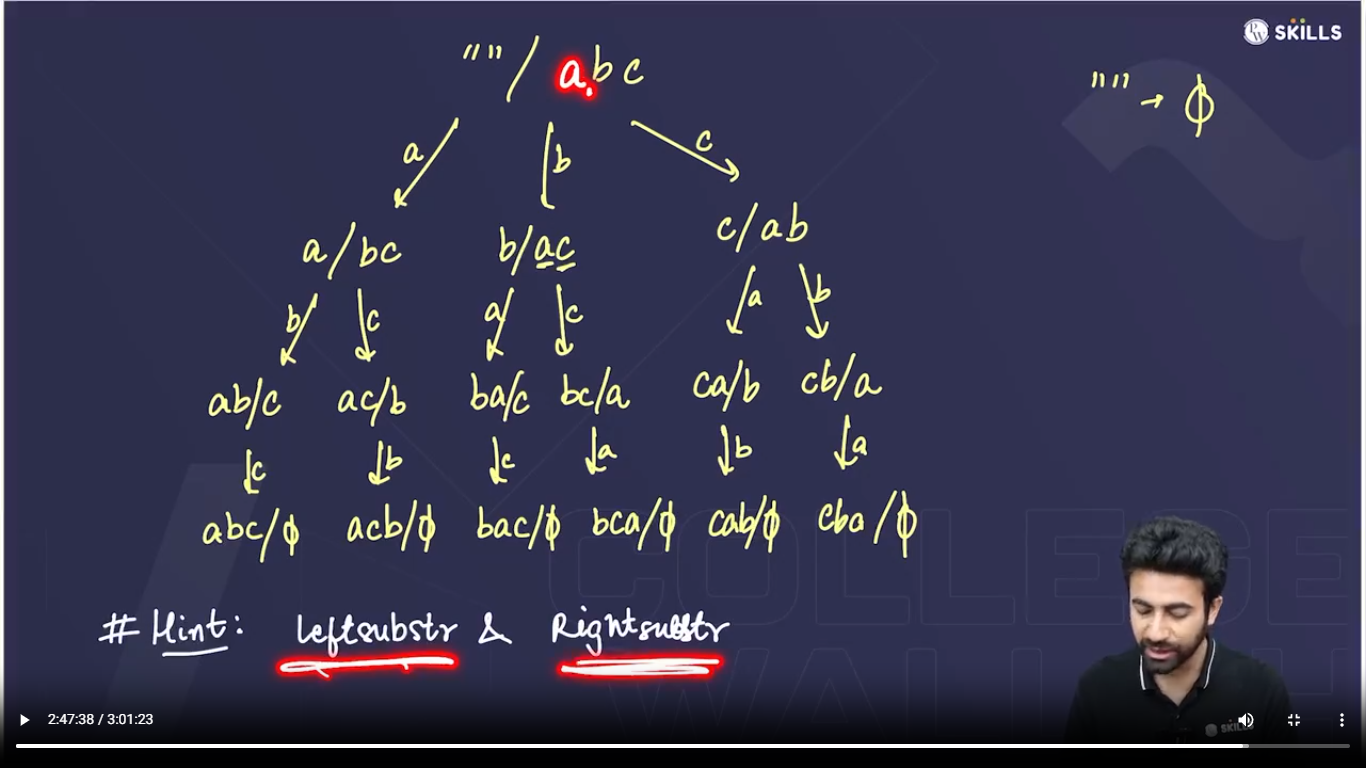 SKILLS
"" / abc
"" → ϕ
a b c
a/bc b/ac c/ab
b c a c a b
ab/c ac/b ba/c bc/a ca/b cb/a
c b c a b a
abc/ϕ acb/ϕ bac/ϕ bca/ϕ cab/ϕ cba/ϕ
COLLEGE
# Hint: leftsubstr & Rightsubstr
WALLAH
SKILLS
2:47:38 / 3:01:23